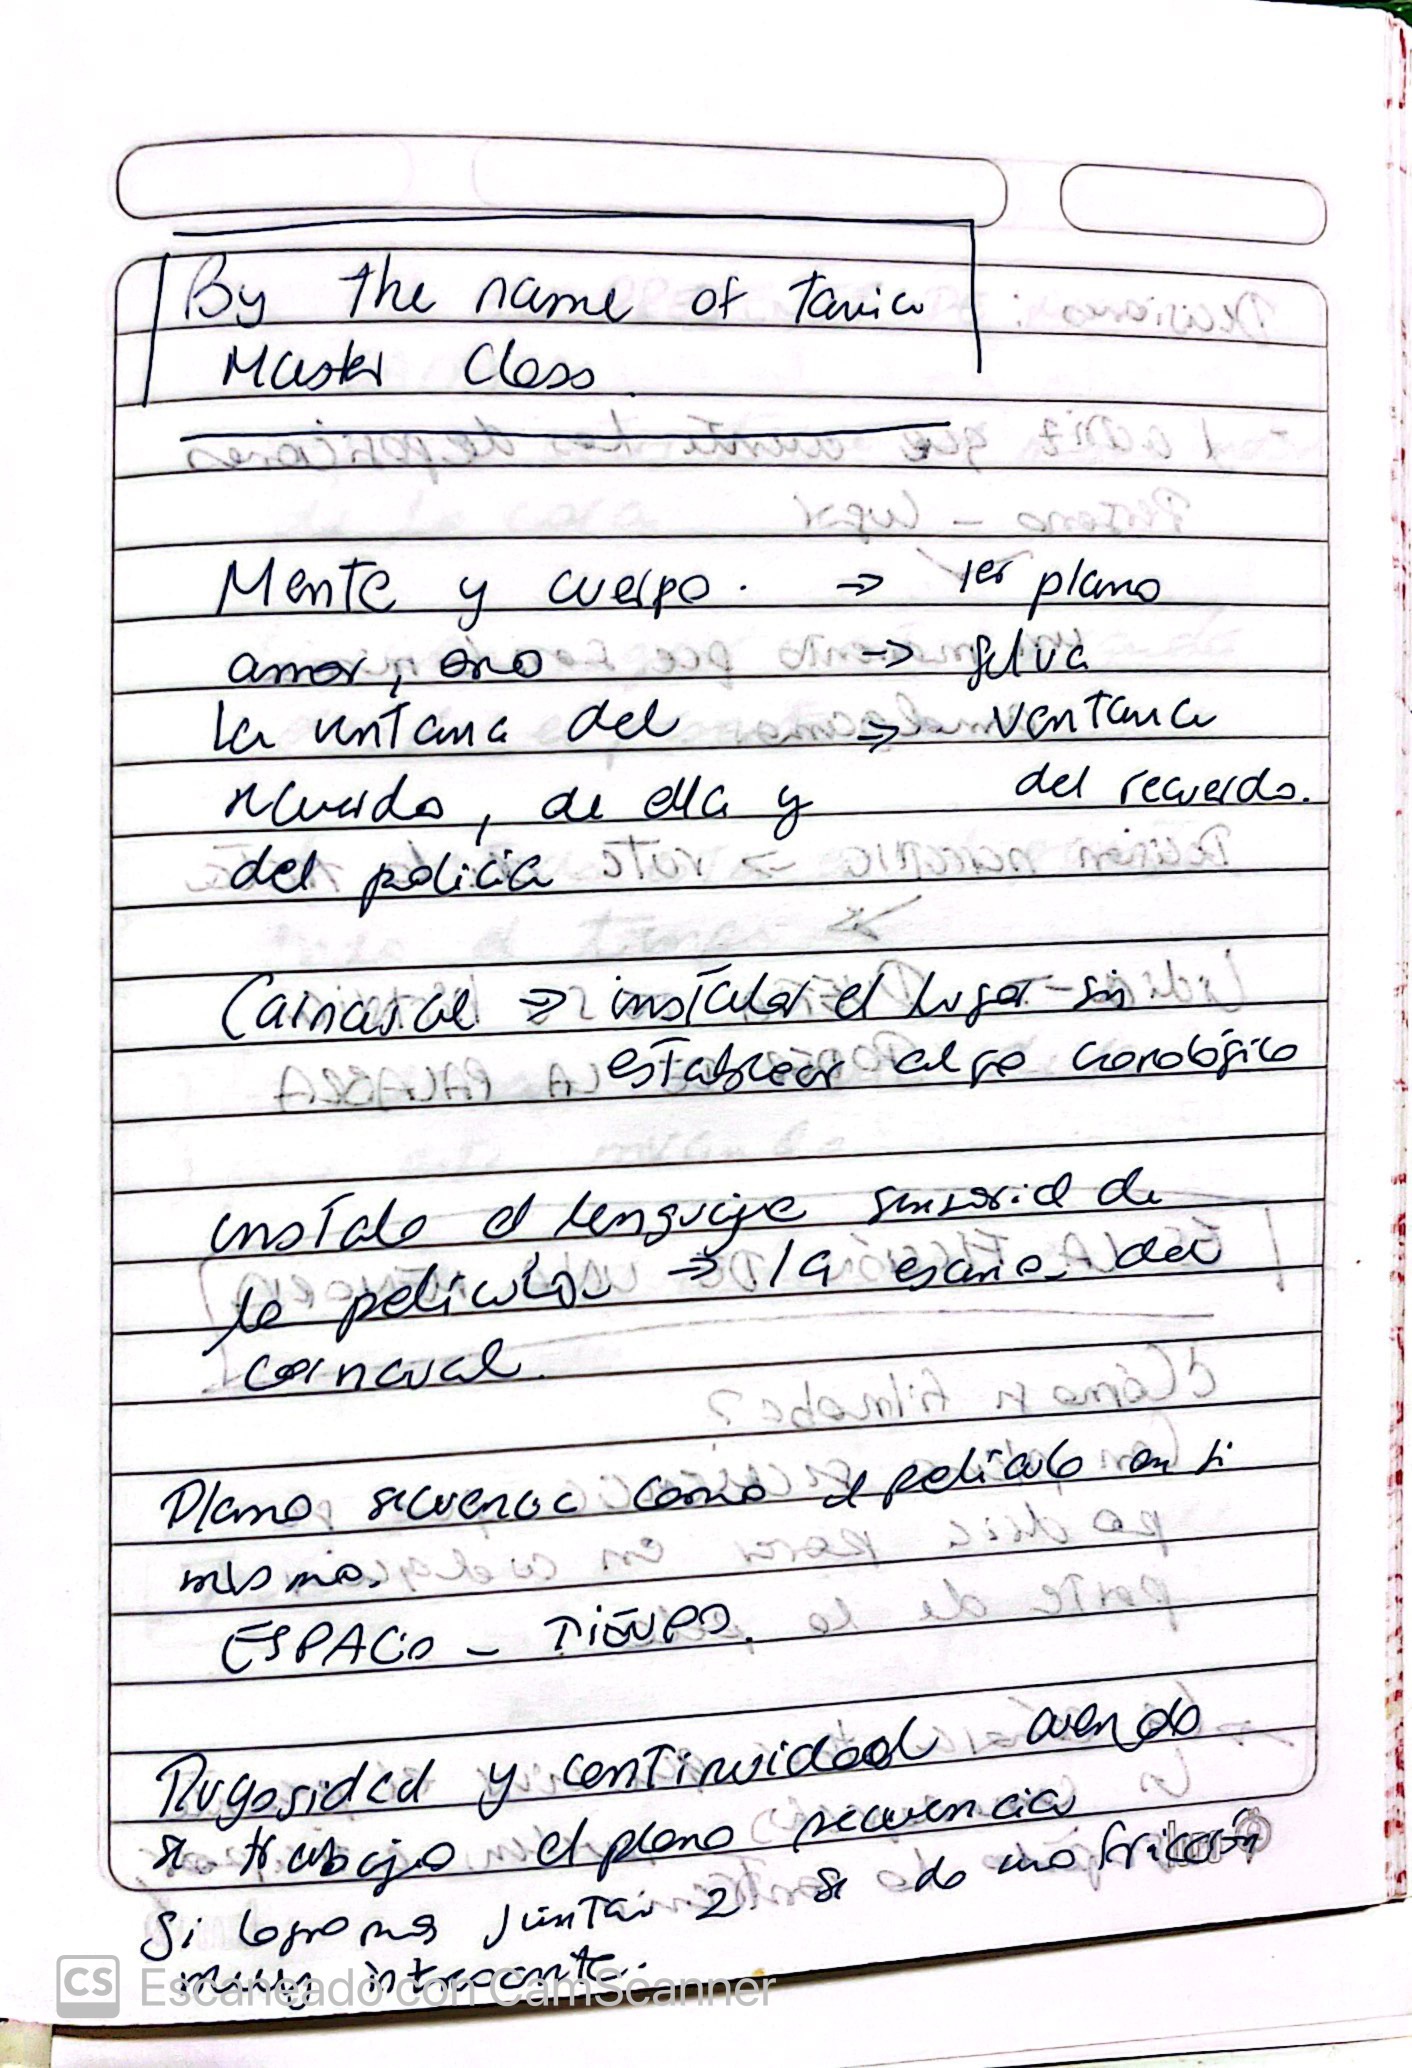 By the name of Tania
Master Class.
Mente y cuerpo. => 1er plano
amor, oro -> selva
La ventana del => ventana
recuerdo, de ella y del recuerdo.
del policia
Carnaval => instalar el lugar sin
establecer algo cronológico
instala el lenguaje sensorial de
la película -> la escena del
carnaval.
Plano secuencia como película en si
mismo.
ESPACIO - TIEMPO.
Rugosidad y continuidad cuando
se trabaja el plano secuencia
Si logramos juntar 2 se da una fricción
muy interesante.
CS Escaneado con CamScanner